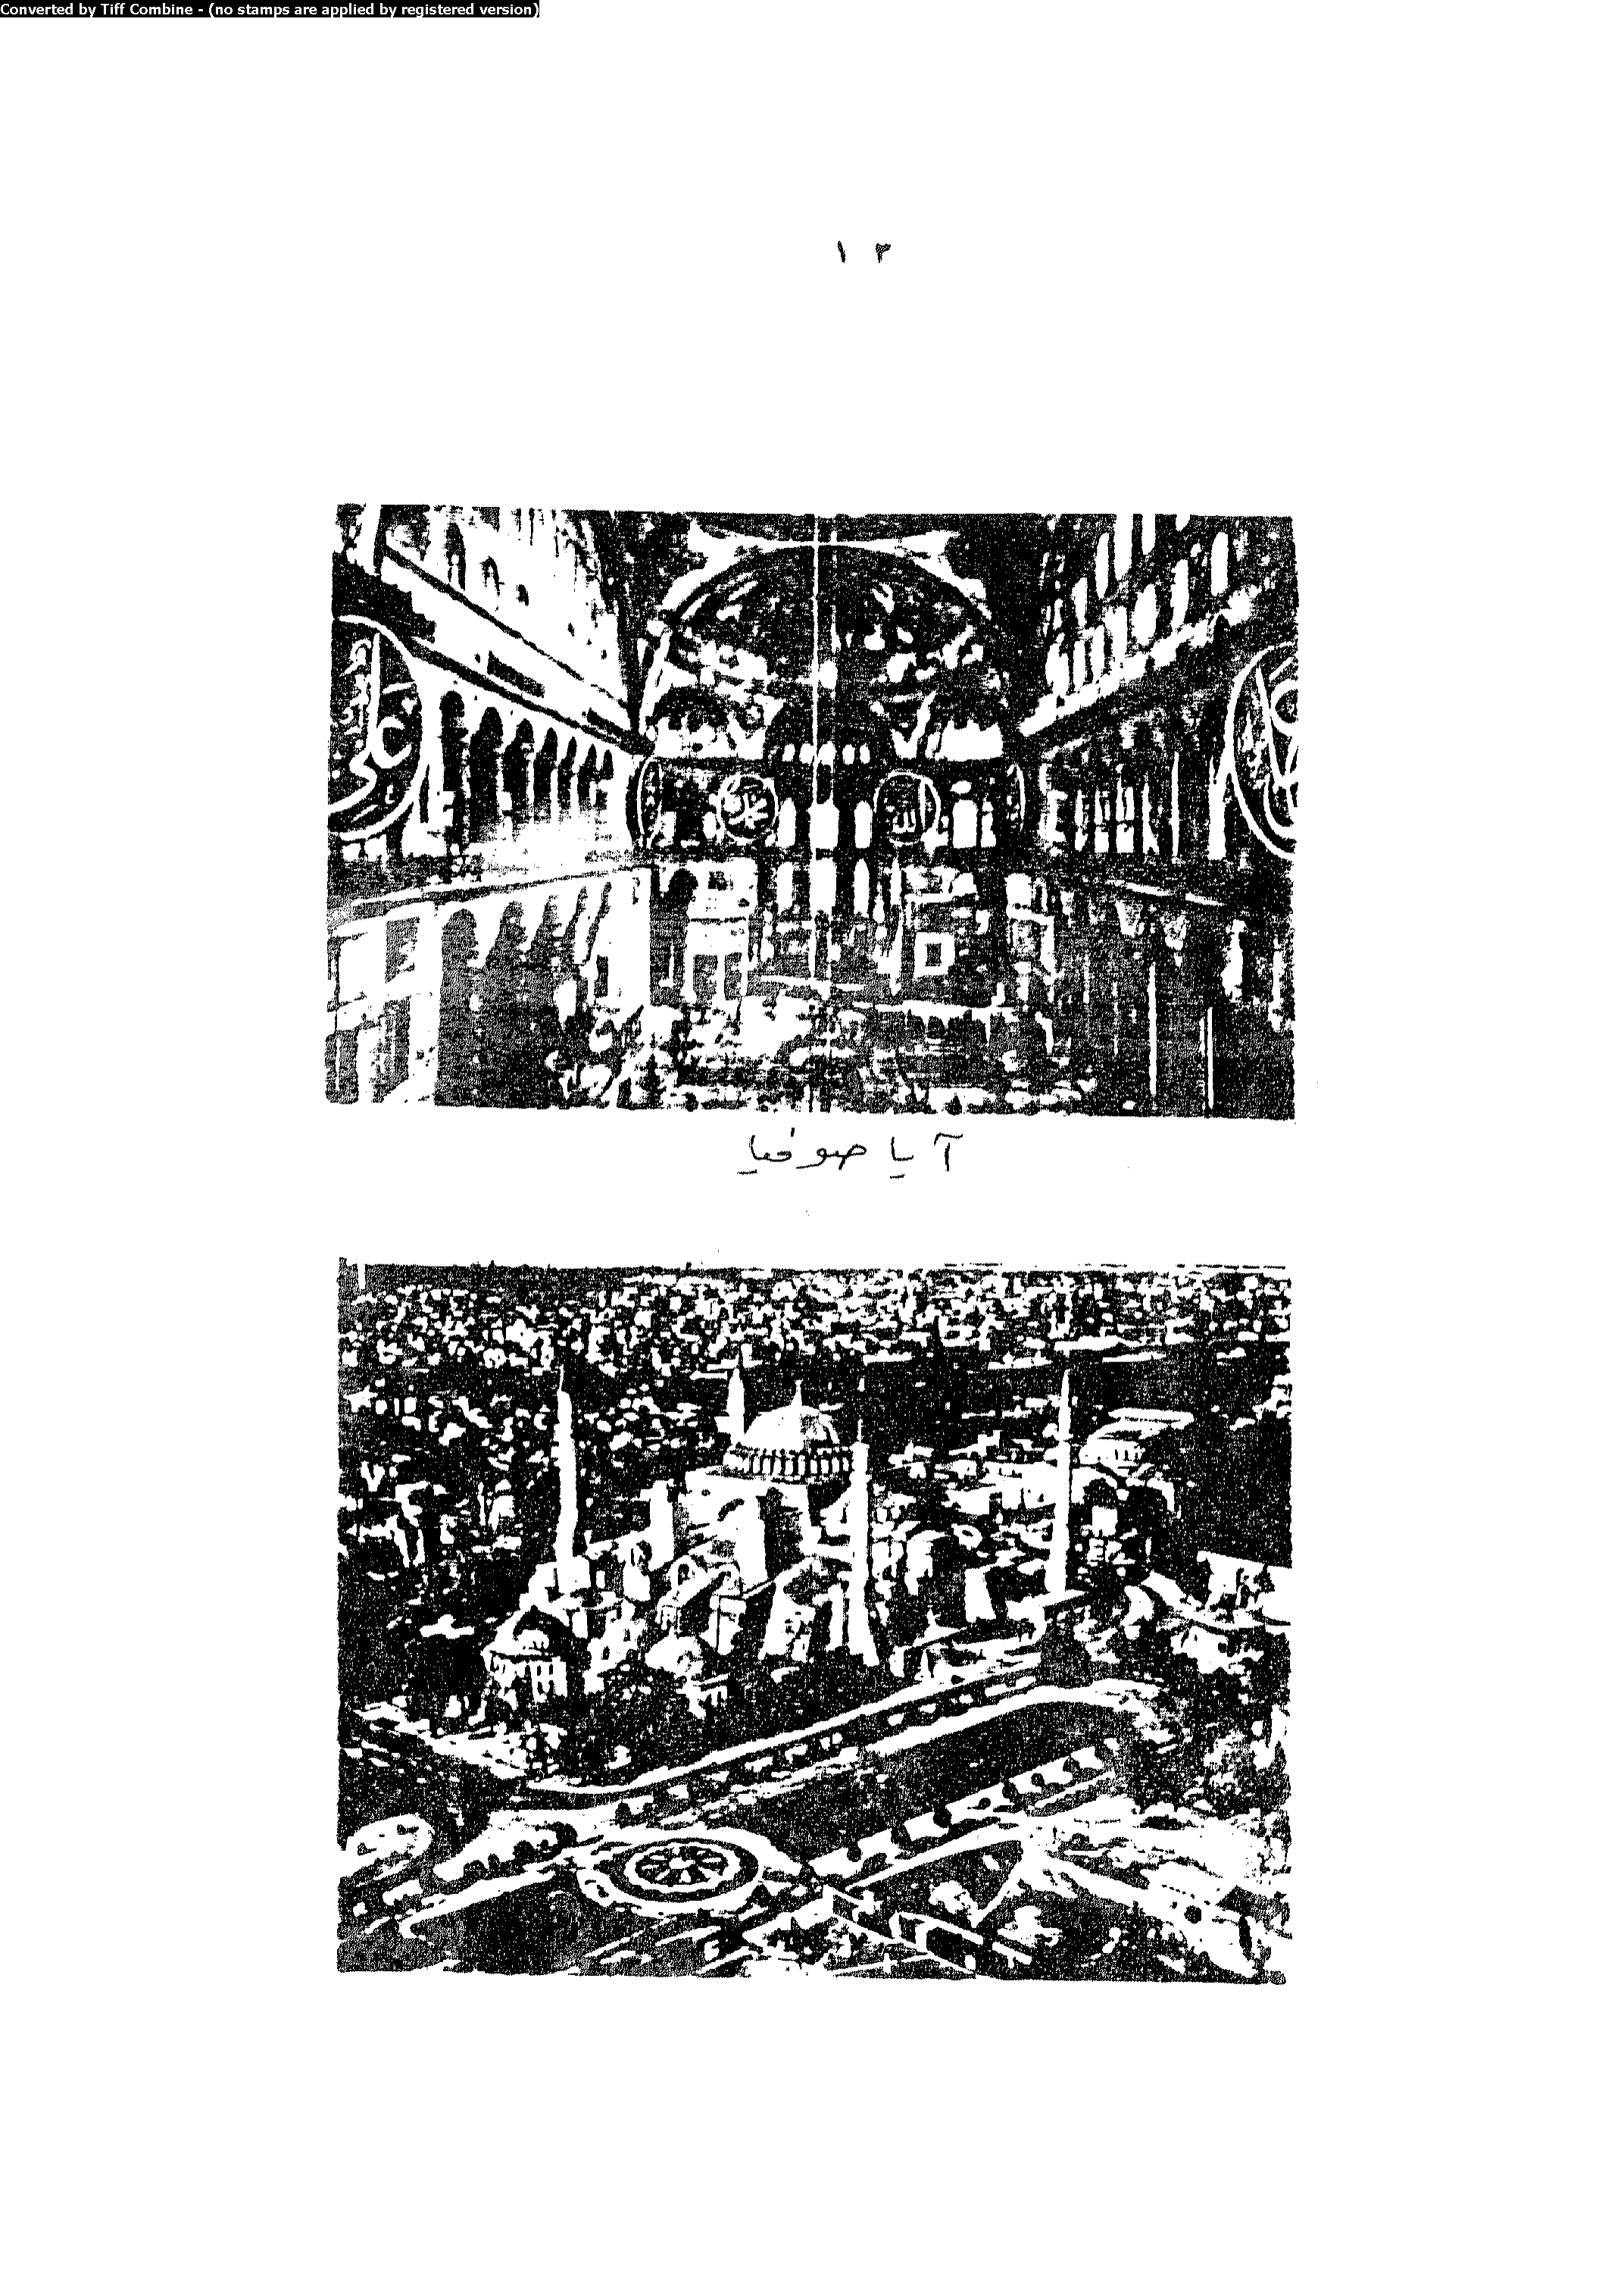 Converted by Tiff Combine - (no stamps are applied by registered version)
١٣
الله محمد
آيا صوفيا